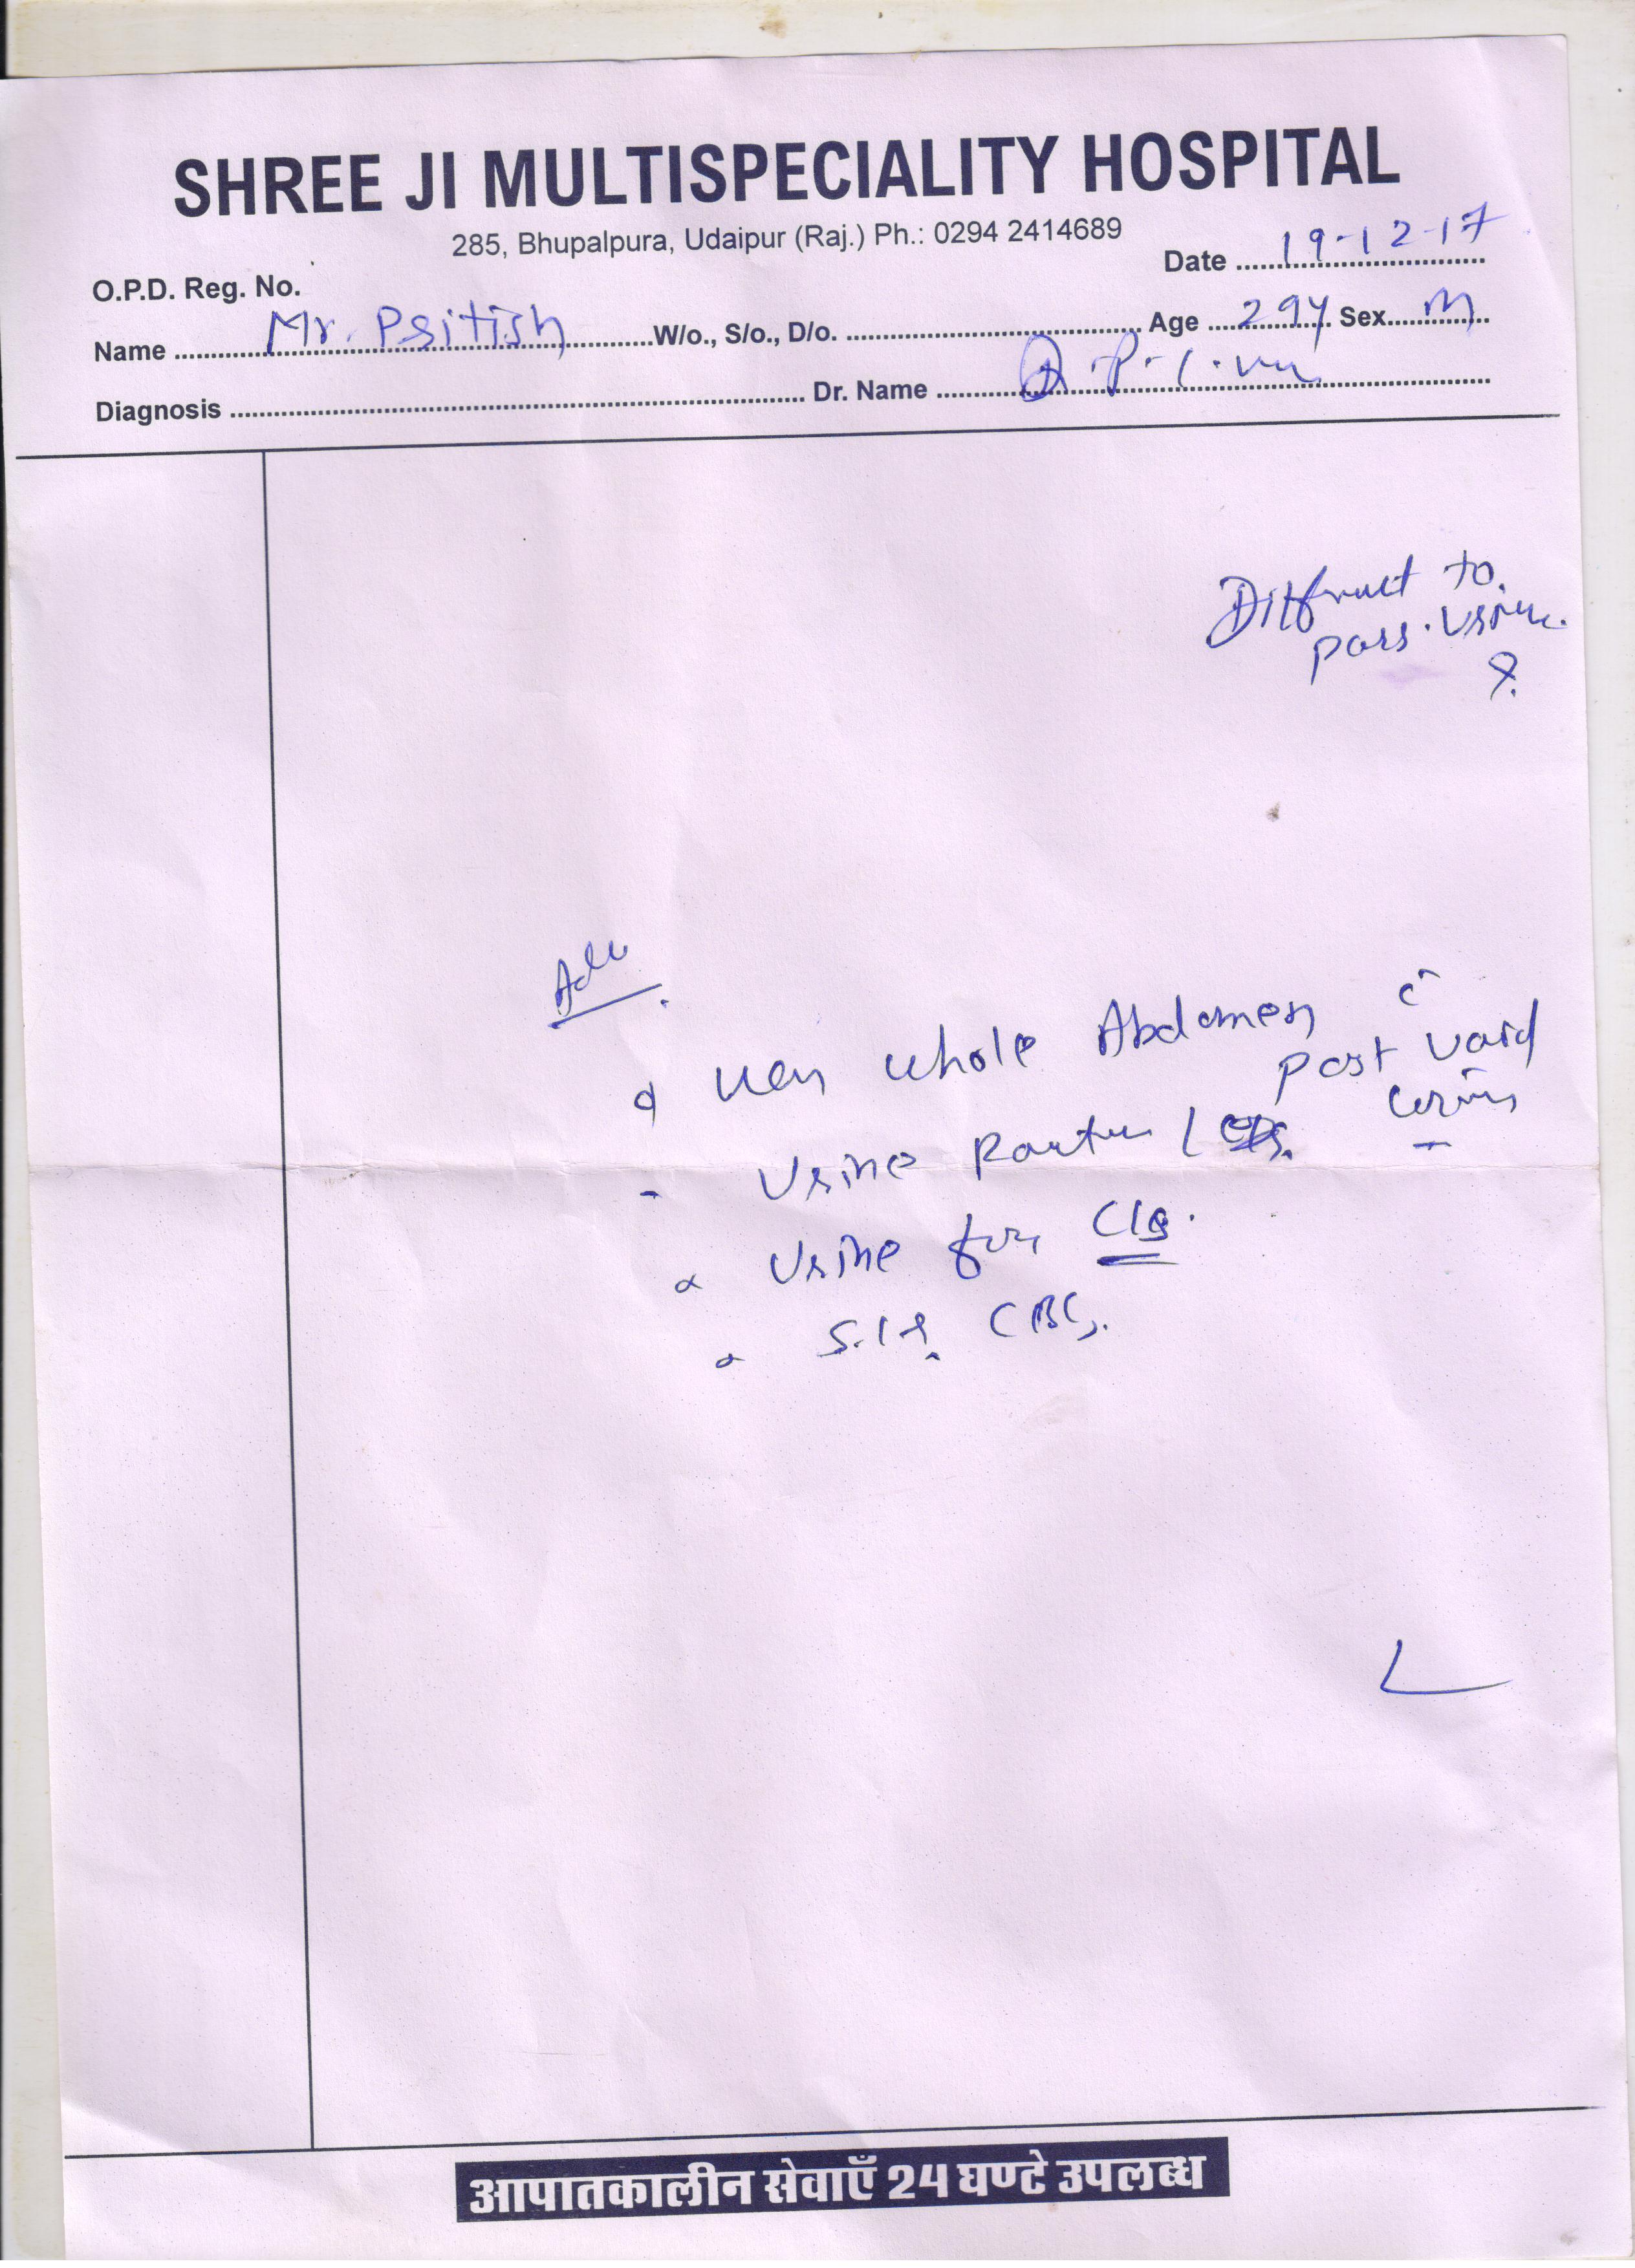 SHREE JI MULTISPECIALITY HOSPITAL
285, Bhupalpura, Udaipur (Raj.) Ph.: 0294 2414689
Date 19-12-17
O.P.D. Reg. No.
Name Mr. Psitish W/o., S/o., D/o. Age 29Y Sex M
Diagnosis Dr. Name
to.
pass. 
Adv
whole Abdomen c̄
post void
Urine
Urine for C/S.
CBC.
आपातकालीन सेवाएँ 24 घण्टे उपलब्ध